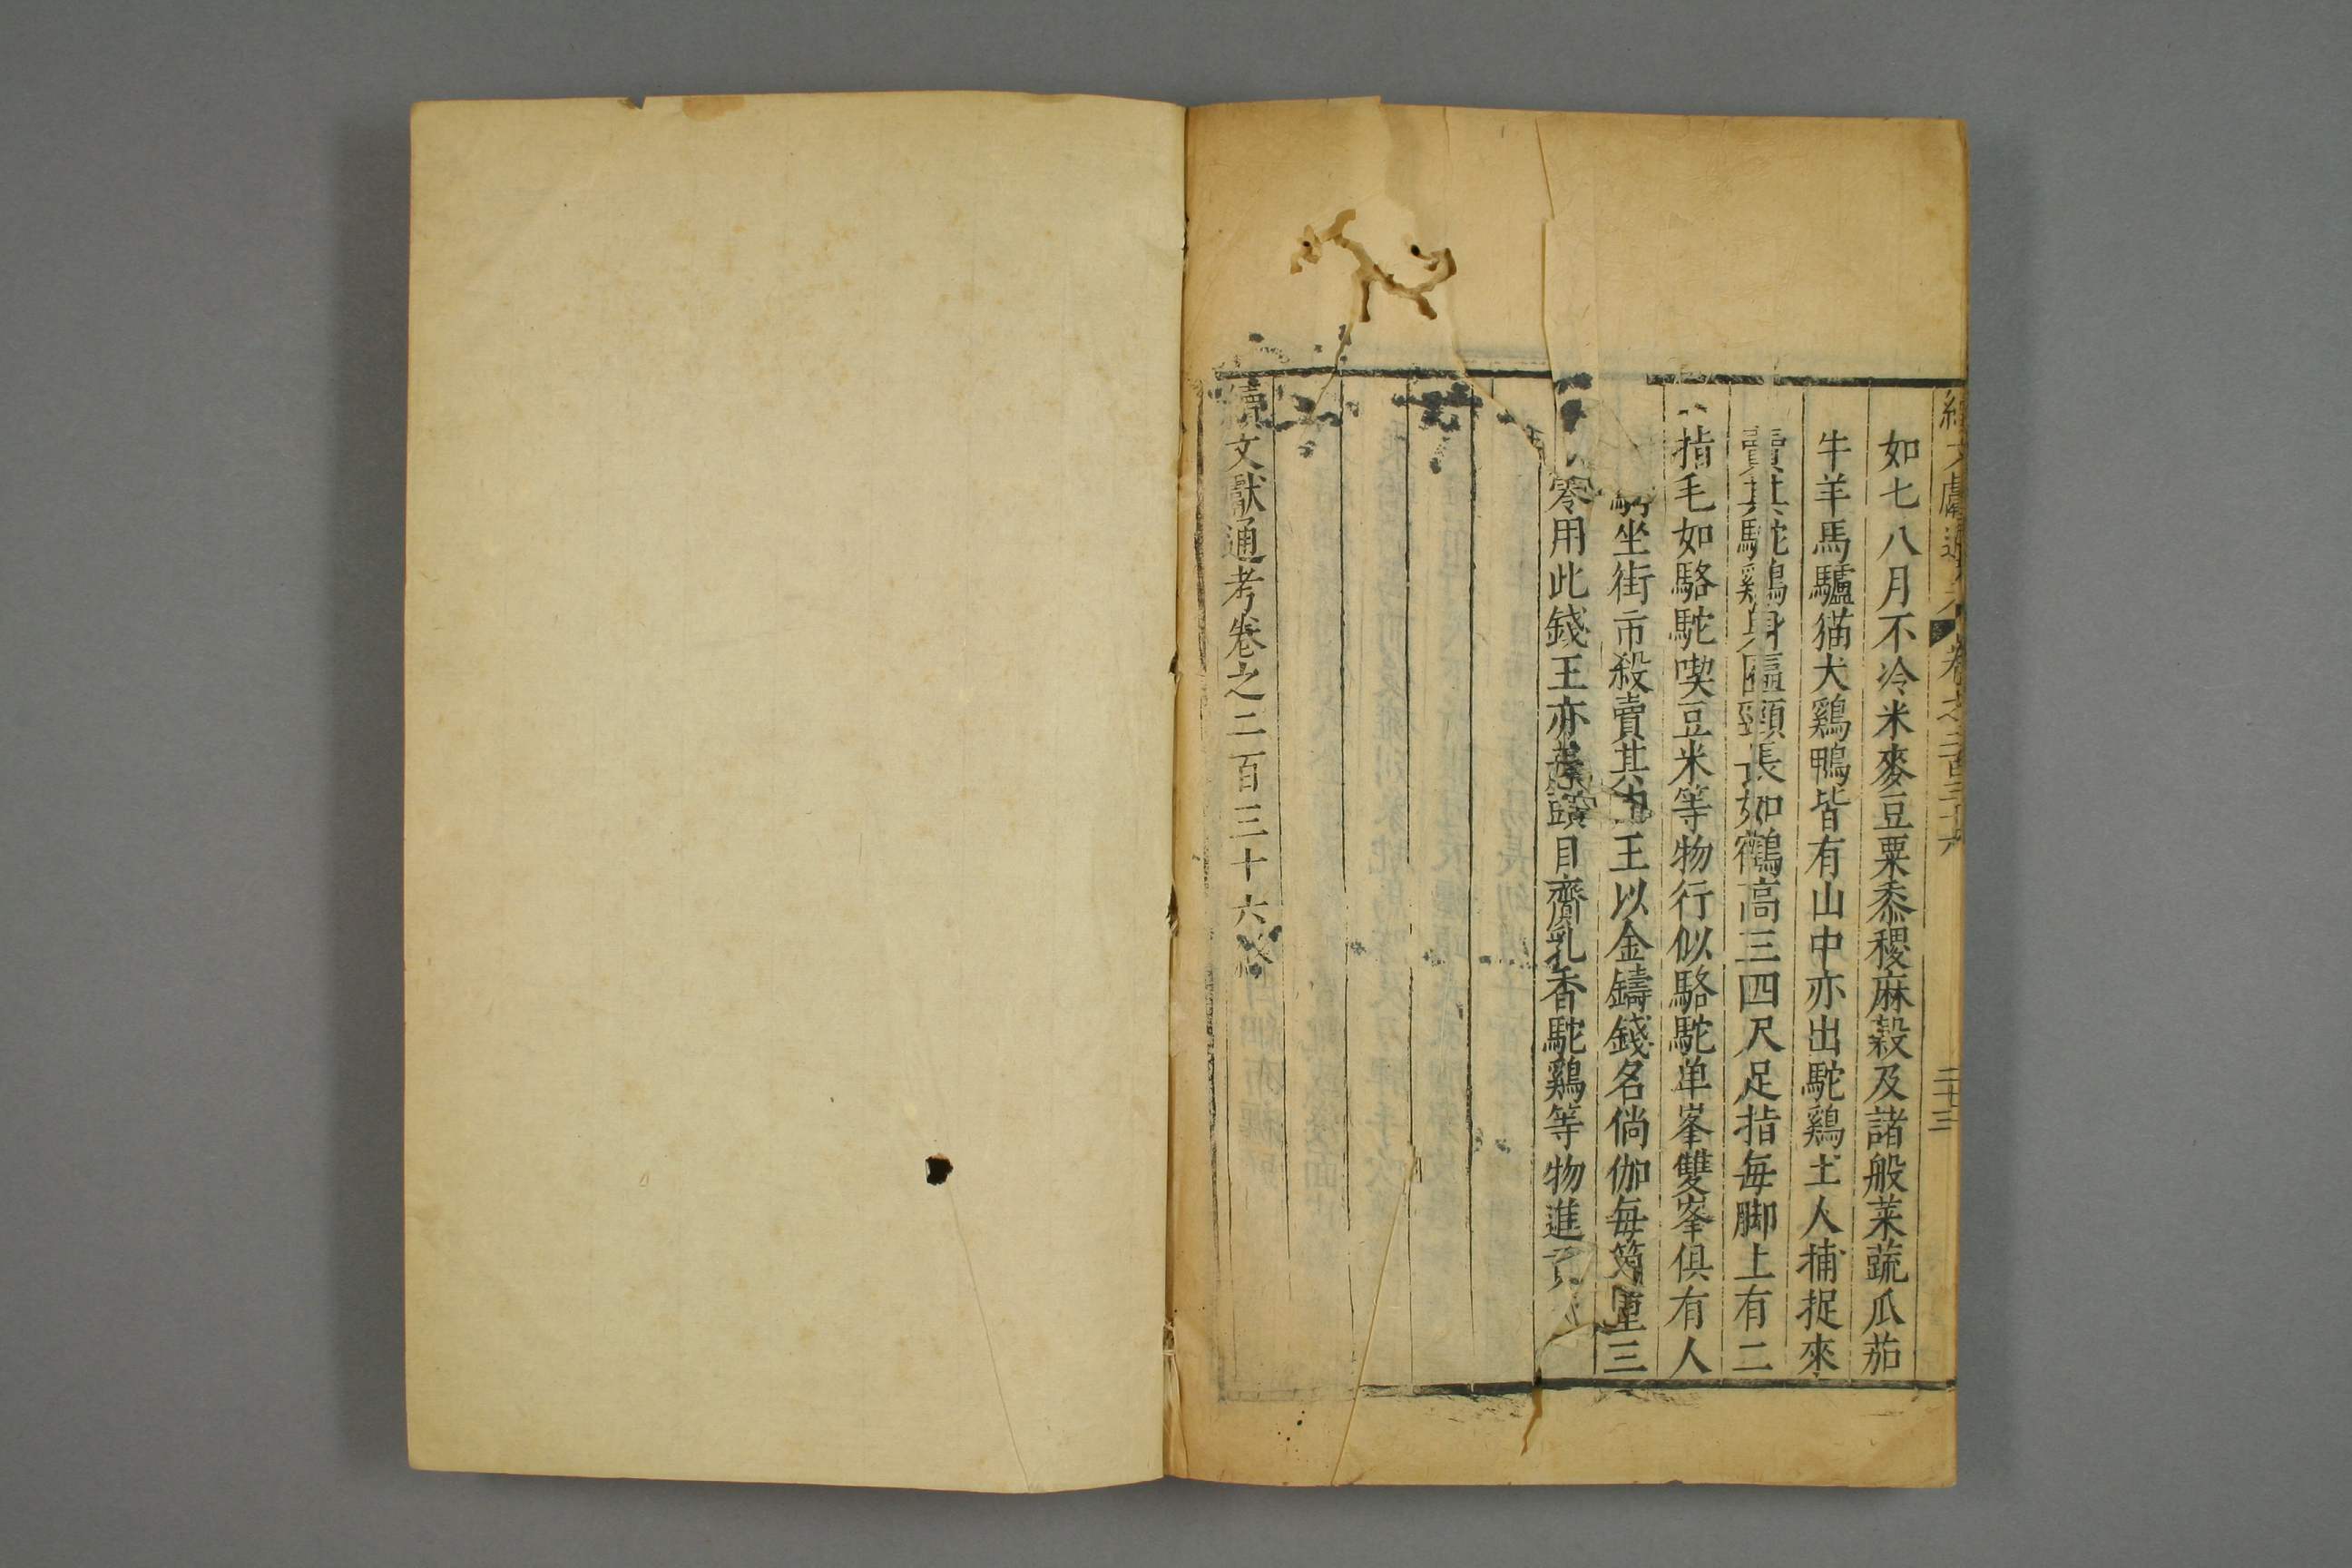 續文獻通考 卷之二百三十六 二十三
如七八月不冷米麥豆粟黍稷麻穀及諸般菜蔬瓜茄
牛羊馬驢猫犬鷄鴨皆有山中亦出駝鷄土人捕捉來
賣其駝鷄身匾頸長如鶴高三四尺足指每脚上有二
指毛如駱駝喫豆米等物行似駱駝单峯雙峯俱有人
騎坐街市殺賣其肉王以金鑄錢名倘伽每箇重三
零用此錢王亦差頭目齎乳香駝鷄等物進貢
續文獻通考卷之二百三十六終